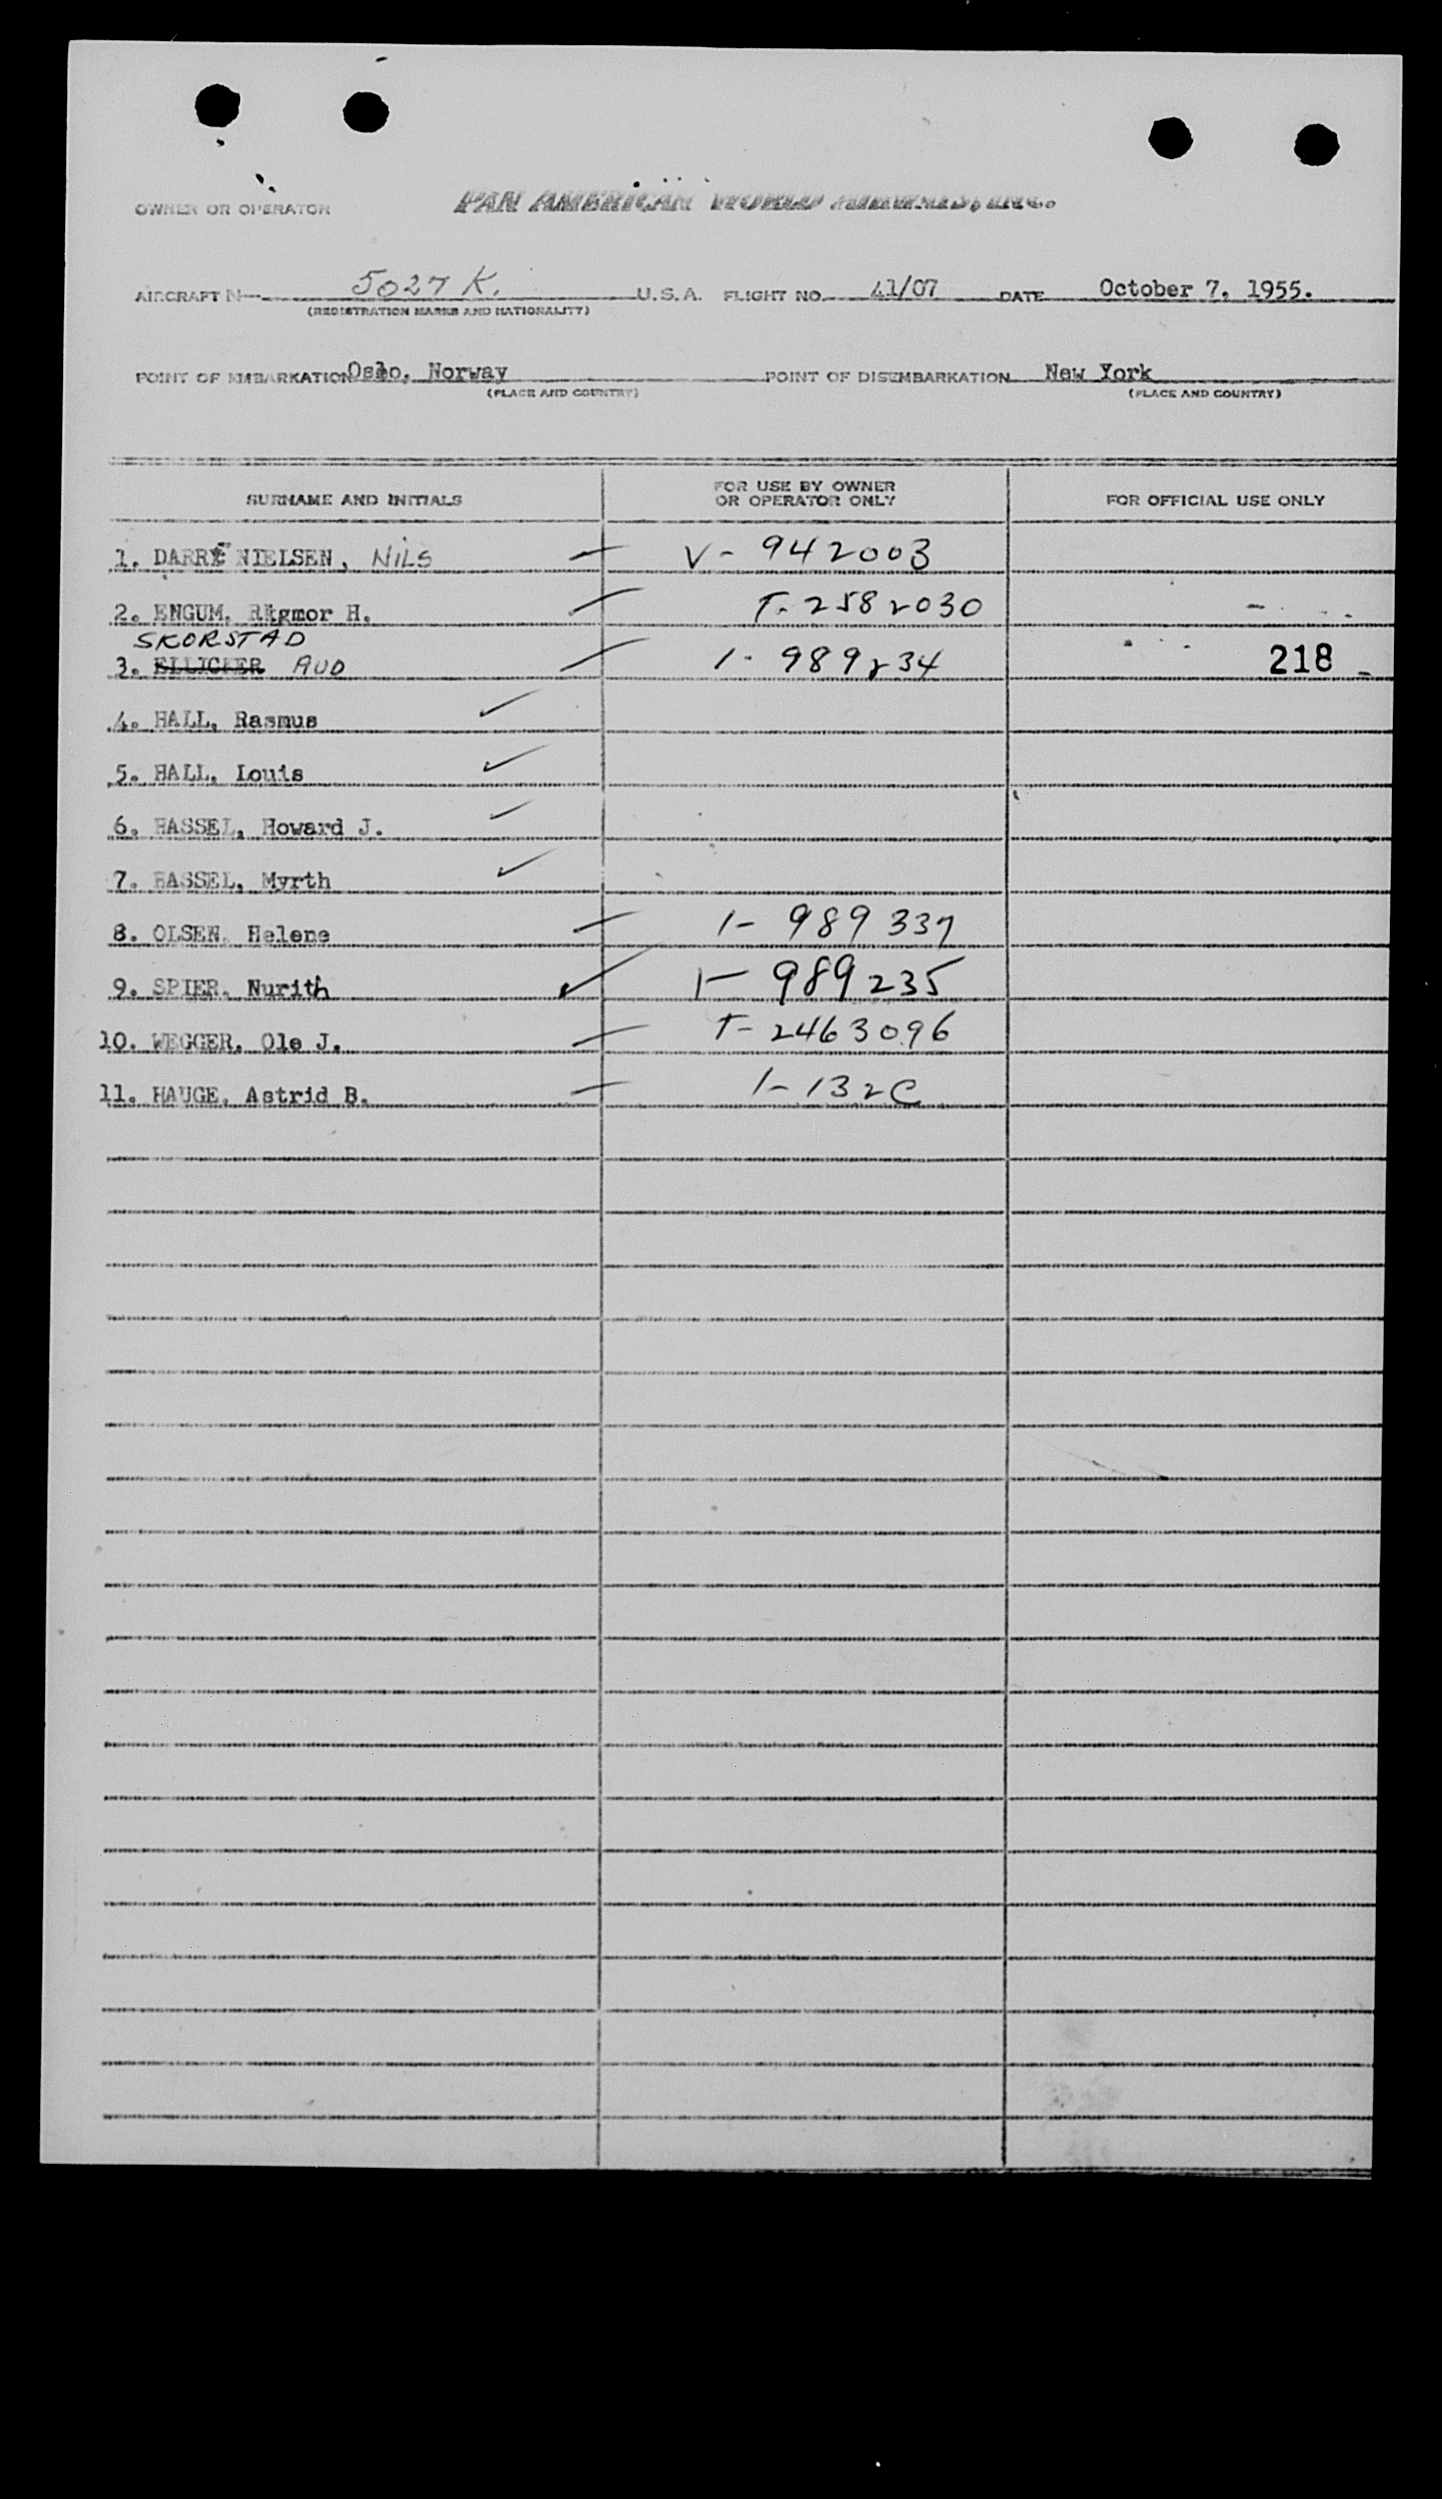 OWNER OR OPERATOR PAN AMERICAN WORLD AIRWAYS, INC.
AIRCRAFT N— 5027 K. U.S.A. FLIGHT NO. 41/07 DATE October 7, 1955.
(REGISTRATION MARKS AND NATIONALITY)
POINT OF EMBARKATION Oslo, Norway POINT OF DISEMBARKATION New York
(PLACE AND COUNTRY) (PLACE AND COUNTRY)
SURNAME AND INITIALS FOR USE BY OWNER OR OPERATOR ONLY FOR OFFICIAL USE ONLY
1. DARRE NIELSEN, NILS V- 942003
2. ENGUM, Rigmor H. T- 2582030
SKORSTAD
3. ELLICKER AUD 1- 989234 218
4. HALL, Rasmus
5. HALL, Louis
6. HASSEL, Howard J.
7. HASSEL, Myrth
8. OLSEN, Helene 1- 989337
9. SPIER, Nurith 1- 989235
10. WEGGER, Ole J. T- 2463096
11. HAUGE, Astrid B. 1-132C